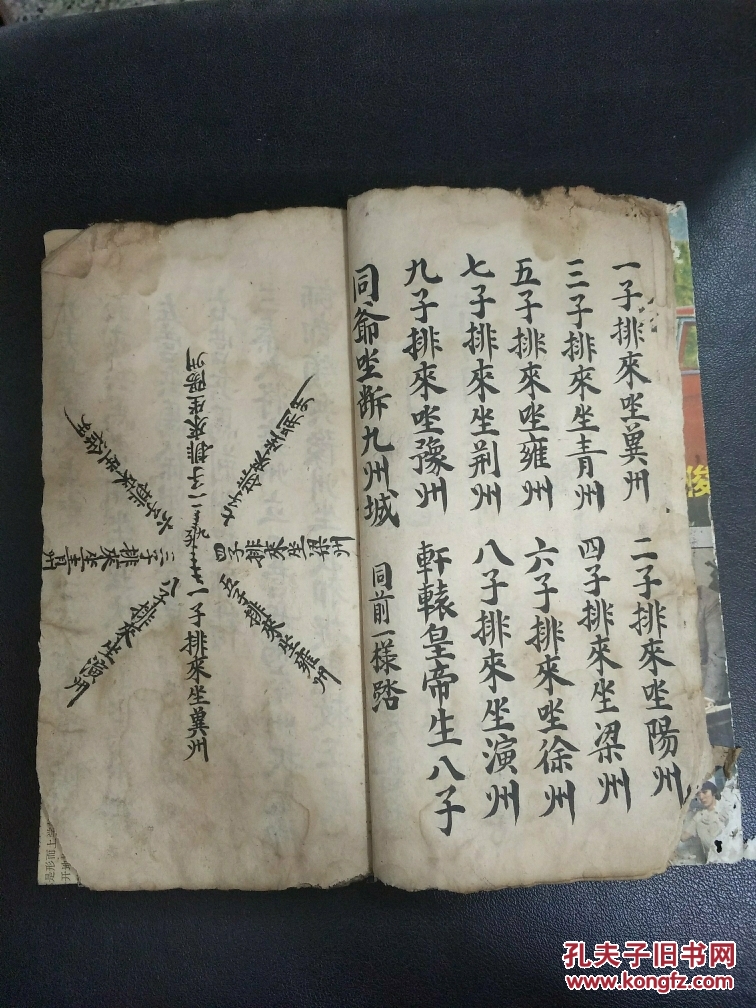 一子排來坐冀州
二子排來坐陽州
三子排來坐青州
四子排來坐梁州
五子排來坐雍州
六子排來坐徐州
七子排來坐荆州
八子排來坐演州
九子排來坐豫州
軒轅皇帝生八子
同爺坐断九州城
同前一様踏
一子排來坐冀州
二子排來坐陽州
三子排來坐青州
四子排來坐梁州
五子排來坐雍州
六子排來坐徐州
七子排來坐荆州
八子排來坐演州
是形而上学
孔夫子旧书网
www.kongfz.com